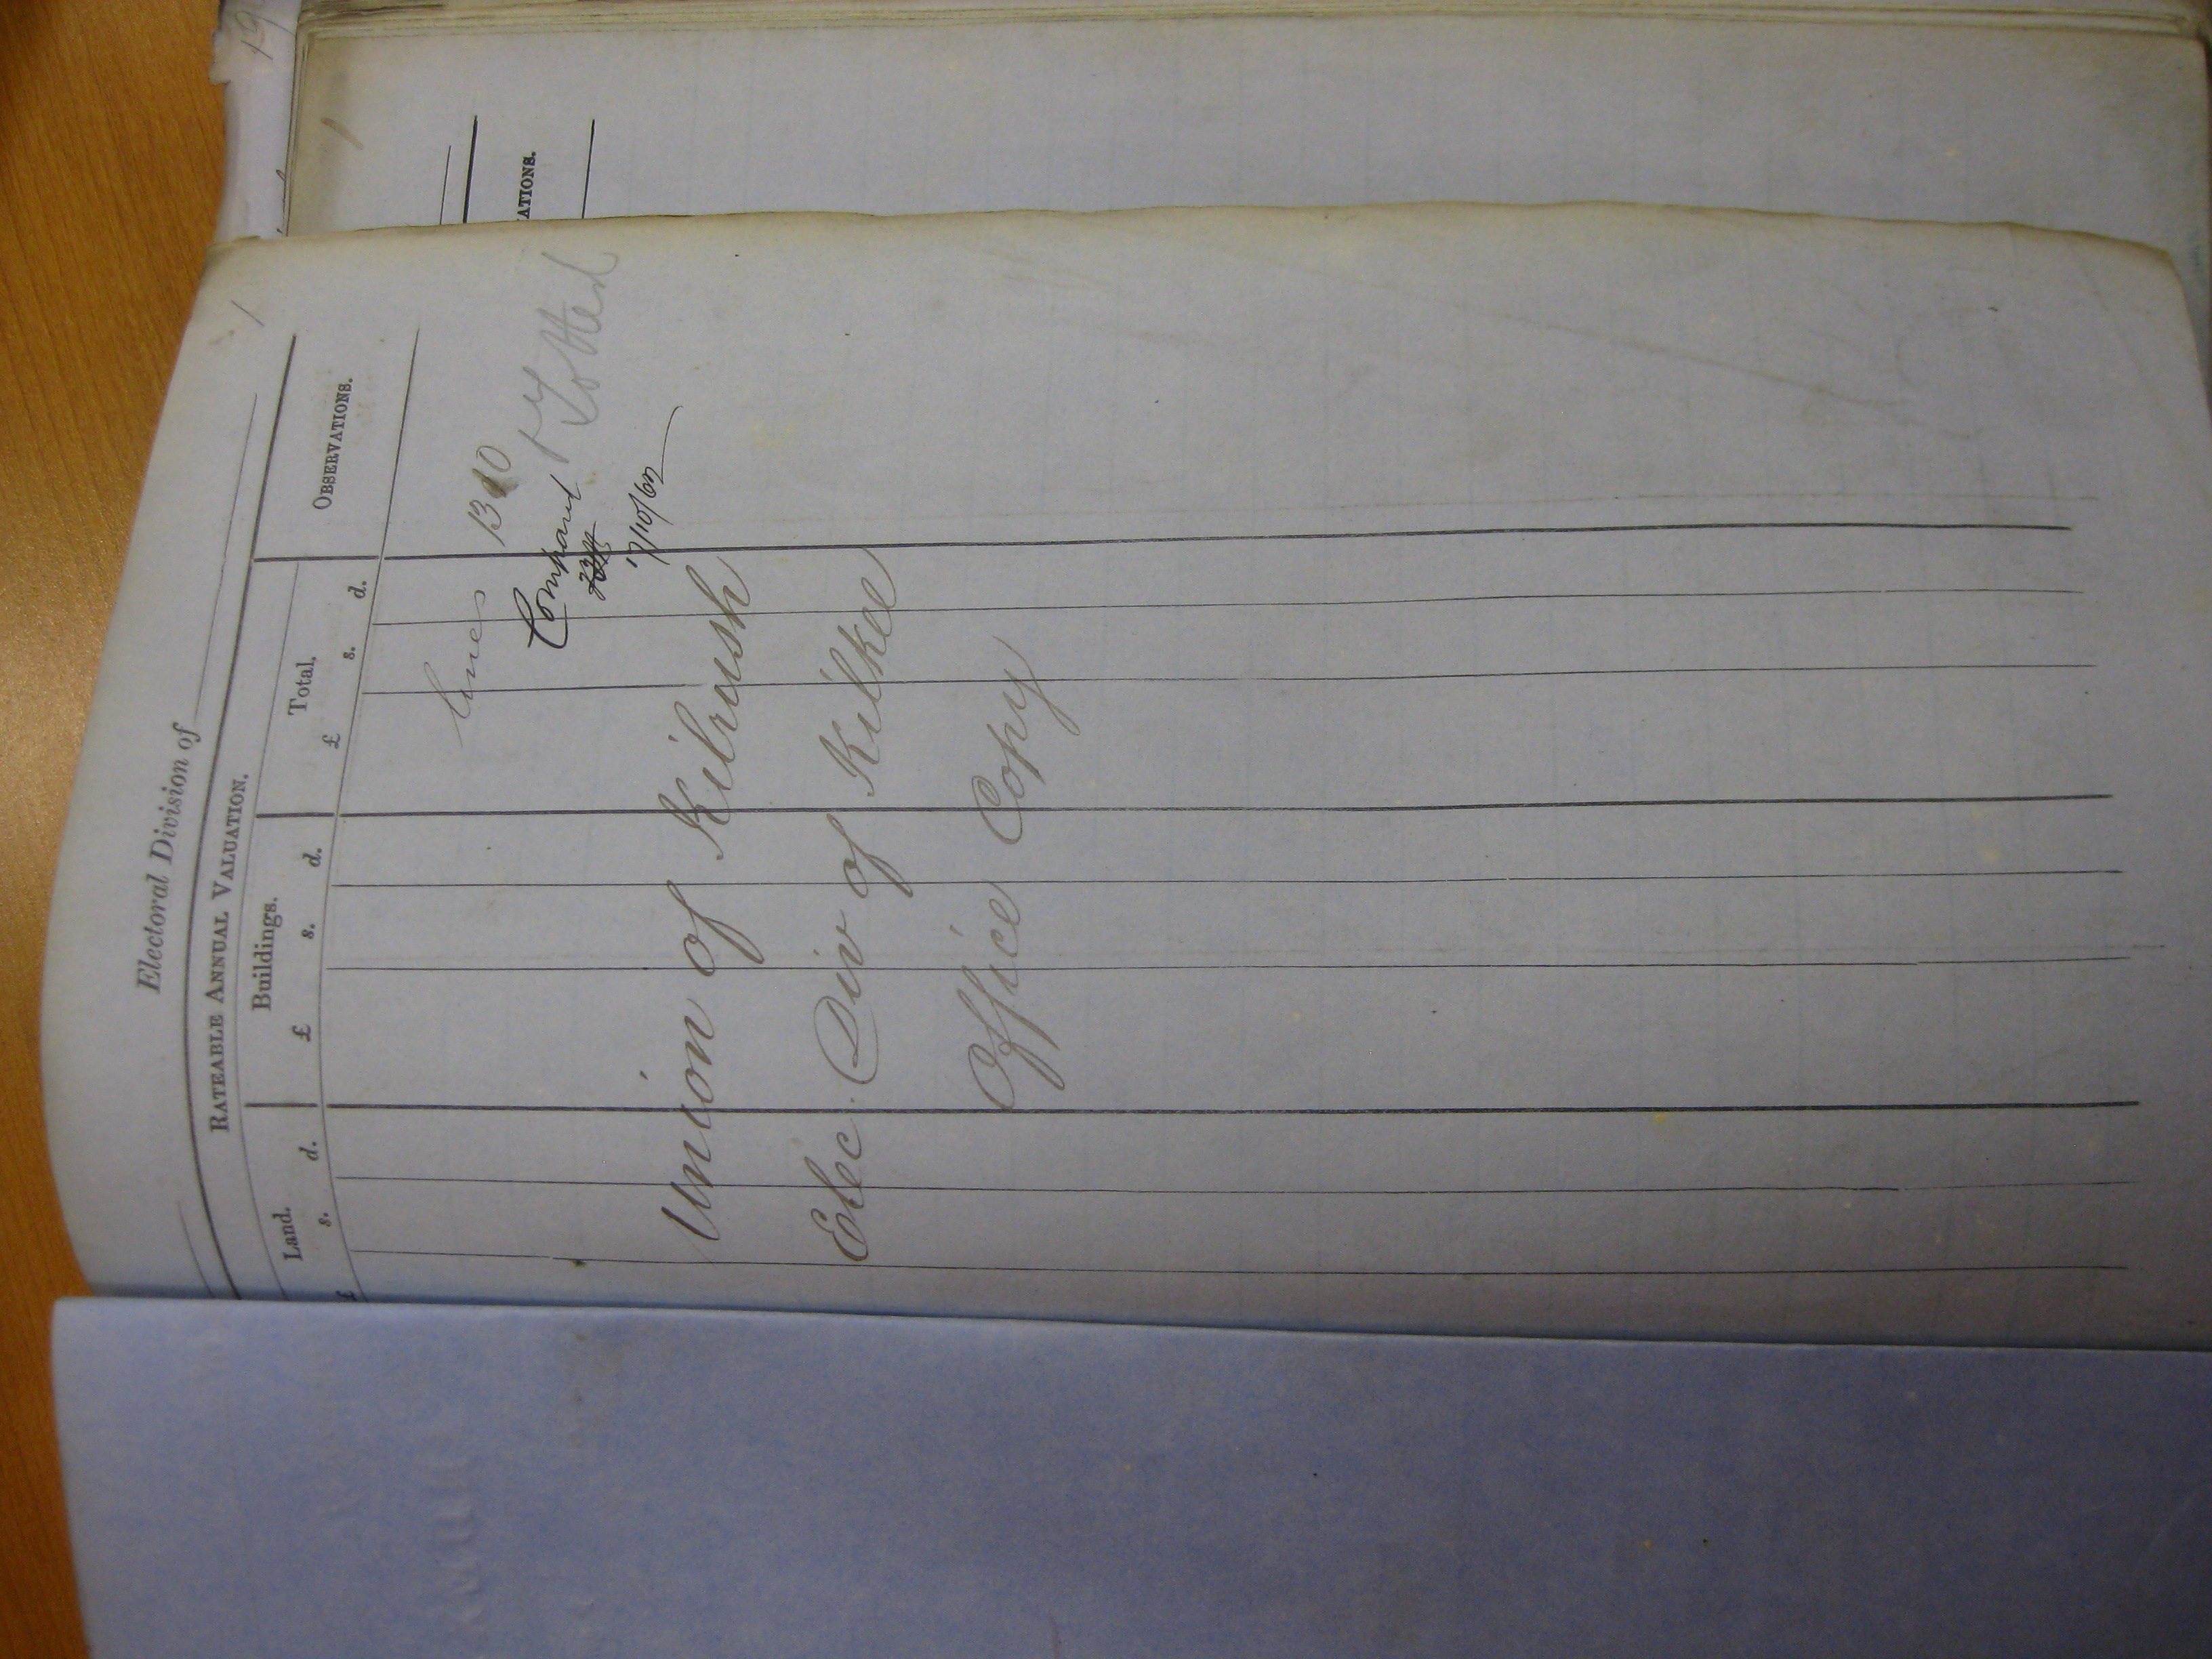 19
ATIONS.
1
Electoral Division of
RATEABLE ANNUAL VALUATION.
OBSERVATIONS.
Land.
Buildings.
Total.
£ s. d.
£ s. d.
£ s. d.
lines 1310
Compared
17/10/62
Union of Kilrush
Elec. Div of Kilkee
Office Copy